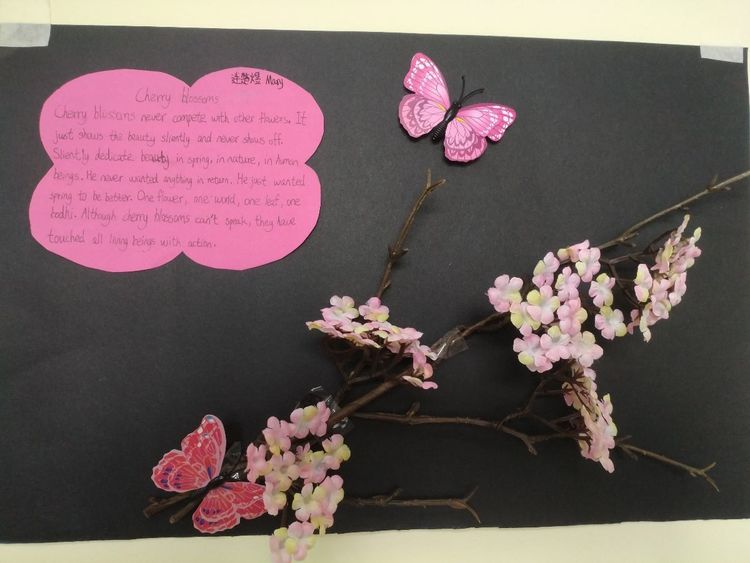 连皓煜 Mary
Cherry blossoms
Cherry blossoms never compete with other flowers. It
just shows the beauty sliently and never shows off.
Sliently dedicate beauty in spring, in nature, in human
beings. He never wanted anything in return. He just wanted
spring to be better. One flower, one world, one leaf, one
bodhi. Although cherry blossoms can't speak, they have
touched all living beings with action.